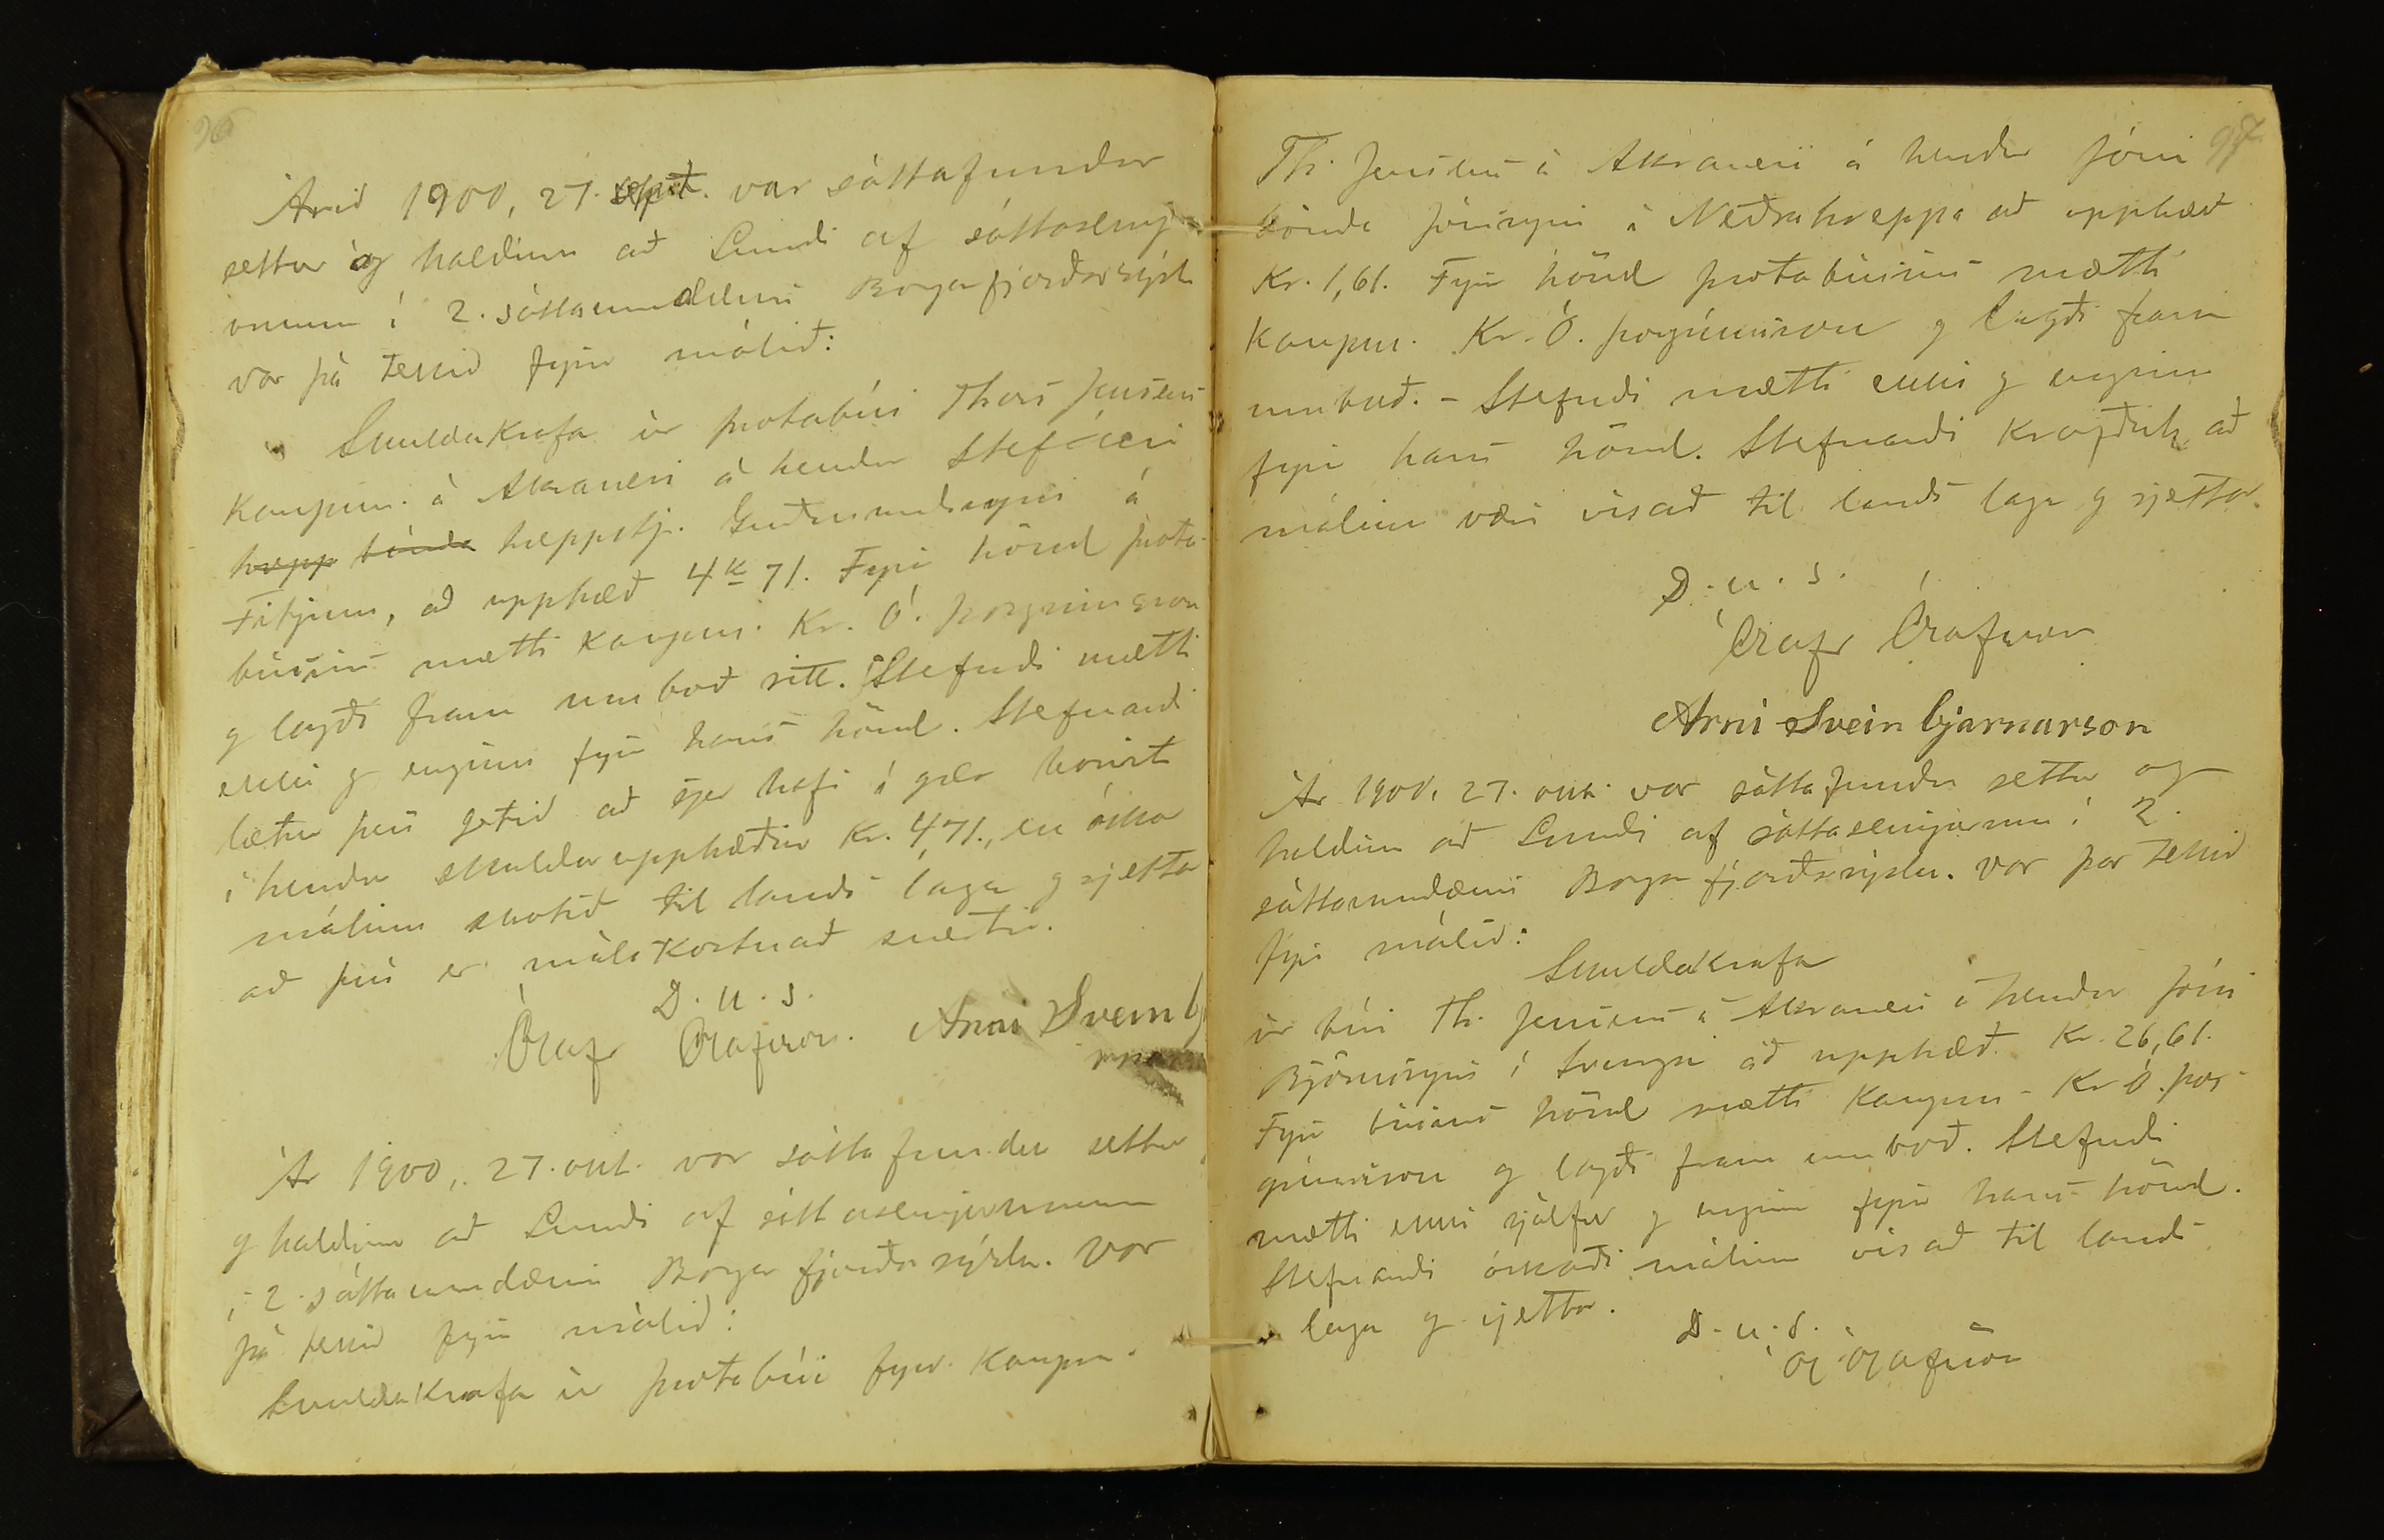 96
Árið 1900, 27. sept. var sáttafundur
settur og haldinn að Lundi af sáttasemj-
onum í 2. sáttaumdæmi Borgarfjarðarsýslu
var þá tekið fyrir málið:
Skuldakrafa úr þrotabúi Thors Jensens
kaupm. á Akranesi á hendur Stefáni
hrepp bónda hreppstj. Guðmundssyni á
Fitjum, að upphæð 4 k 71. Fyrir hönd þrota-
búsins mætti kaupm. Kr. Ó. Þorgrímsson
g lagði fram umboð sitt. Stefndi mætti
ekki g enginn fyrir hans hönd. Stefnandi
lætur þess getið að sjer hafi í gær borist
í hendur skuldarupphæðin Kr. 4,71., en óskar
málinu skotið til lands laga g rjettar
að því er málskostnað snertir.
D. u. s.
Ólafr Ólafsson. Árni Sveinbj
Ár 1900, 27. okt. var sáttafundur settur
g haldinn að Lundi af sáttasemjurunum
í 2. sáttaumdæmi Borgarfjarðarsýslu. Var
þá tekið fyrir málið:
Skuldakrafa úr þrotabúi fyrv. kaupm.
97
Th. Jensens á Akranesi á hendur Jóni
bónda Jónssyni á Neðrahreppi að upphæð
Kr. 1,61. Fyrir hönd þrotabúsins mætti
kaupm. Kr. Ó. Þorgrímsson g lagði fram
umboð. - Stefndi mætti ekki g enginn
fyrir hans hönd. Stefnandi krafðist að
málinu væri vísað til lands laga g rjettar.
D. u. s.
Ólafr Ólafsson
Árni Sveinbjarnarson
Ár 1900, 27. okt. var sáttafundur settur og
haldinn að Lundi af sáttasemjurum í 2.
sáttaumdæmi Borgarfjarðarsýslu. Var þar tekið
fyrir málið:
Skuldakrafa
úr búi Th. Jensens á Akranesi á hendur Jóni
Björnssyni í að upphæð Kr. 26,61.
Fyrir búsins hönd mætti kaupm. Kr. Ó. Þor-
grímsson g lagði fram umboð. Stefndi
mætti ekki sjálfur g enginn fyrir hans hönd.
Stefnandi óskaði málinu vísað til lands
laga g rjettar.
D. u. s.
Ól Ólafsson